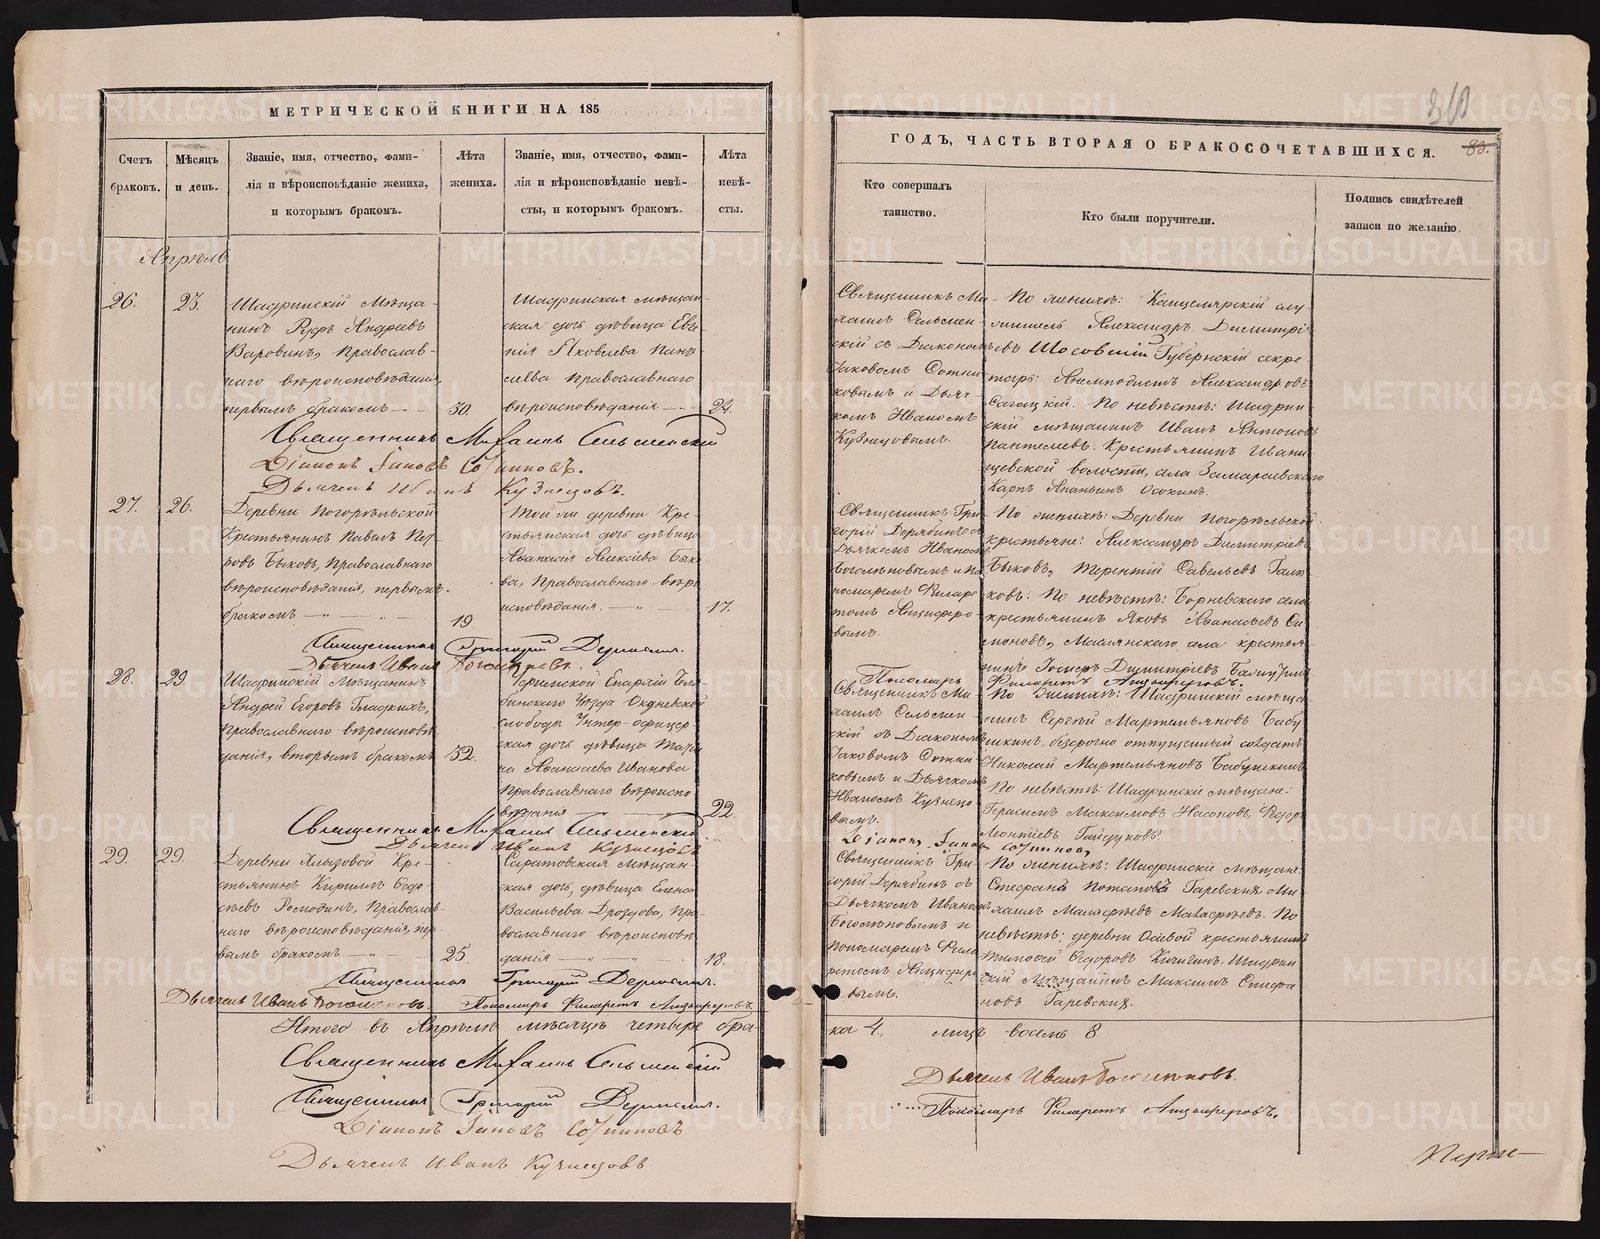 МЕТРИЧЕСКОЙ КНИГИ НА 185
Счетъ браковъ.
Мѣсяцъ и день.
Званіе, имя, отчество, фами-
лія и вѣроисповѣданіе жениха,
и которымъ бракомъ.
Лѣта жениха.
Званіе, имя, отчество, фами-
лія и вѣроисповѣданіе невѣ-
сты, и которымъ бракомъ.
Лѣта невѣ-
сты.
Апрѣль
26.
23.
Шадринскій мѣща-
нинъ Руфъ Андреевъ
Варовинъ, православ-
наго вѣроисповѣданія,
первымъ бракомъ
30.
Шадринская мѣщан-
ская дочь дѣвица Евге-
нія Яковлева Пант-
елѣева православнаго
вѣроисповѣданія
22.
Священникъ Михаилъ Сельменскій
Діаконъ Іаковъ Сотниковъ.
Дьячекъ Иванъ Кузнецовъ.
27.
26.
Деревни Погорѣльской
Крестьянинъ Павелъ Пет-
ровъ Быковъ, православнаго
вѣроисповѣданія, первымъ
бракомъ
19.
Той же деревни кре-
стьянская дочь дѣвица
Аѳанасія Алексѣева Быко-
ва, православнаго вѣро-
исповѣданія.
17.
Священникъ Григорій Дерябинъ.
Дьячекъ Иванъ Боголѣповъ.
28.
29.
Шадринскій мѣщанинъ
Андрей Егоровъ Гладкихъ,
православнаго вѣроисповѣ-
данія, вторымъ бракомъ
32.
слободы Унтер-офицер-
ская дочь дѣвица
Аѳанасьева Иванова
православнаго вѣроиспо-
вѣданія
22.
Священникъ Михаилъ Сельменскій
Дьячекъ Иванъ Кузнецовъ
29.
29.
Деревни Хлызовой кре-
стьянинъ Кириллъ Ѳедо-
сѣевъ Господинъ, православ-
наго вѣроисповѣданія, пер-
вымъ бракомъ
25.
Саратовская мѣщан-
ская дочь, дѣвица Елена
Васильева Дроздова, пра-
вославнаго вѣроисповѣ-
данія
18.
Священникъ Григорій Дерябинъ.
Дьячекъ Иванъ Боголѣповъ.
Пономарь Филаретъ Анциферовъ.
Итого въ Апрѣлѣ мѣсяцѣ четыре бра-
Священникъ Михаилъ Сельменскій
Священникъ Григорій Дерябинъ.
Діаконъ Іаковъ Сотниковъ
Дьячекъ Иванъ Кузнецовъ.
310
83.
ГОДЪ, ЧАСТЬ ВТОРАЯ О БРАКОСОЧЕТАВШИХСЯ.
Кто совершалъ
таинство.
Кто были поручители.
Подпись свидѣтелей
записи по желанію.
Священникъ Ми-
хаилъ Сельмен-
скій съ Діакономъ
Іаковомъ Сотни-
ковымъ и Дьяч-
комъ Иваномъ
Кузнецовымъ.
По женихѣ: Канцелярскій слу-
житель Александръ Димитрі-
евъ Шосовскій Губернскій секре-
тарь: Анемподистъ Александровъ
По невѣстѣ: Шадрин-
скій мѣщанинъ Иванъ Антоновъ
Пантелеевъ. Крестьянинъ Ивани-
щевской волости, села Замараевскаго
Карпъ Ананьинъ Осокинъ.
Священникъ Гри-
горій Дерябинъ съ
Дьячкомъ Иваномъ
Боголѣповымъ и По-
номаремъ Филаре-
томъ Анциферо-
вымъ.
По женихѣ: Деревни Погорѣльской
крестьяне: Александръ Димитріевъ
Быковъ, Терентій Савельевъ
По невѣстѣ: села
крестьянинъ Яковъ Аѳанасьевъ Си-
моновъ, Маслянскаго села крестья-
нинъ Димитріевъ
Пономарь Филаретъ Анциферовъ.
Священникъ Ми-
хаилъ Сельмен-
скій съ Діакономъ
Іаковомъ Сотни-
ковымъ и Дьячкомъ
Иваномъ Кузнецо-
вымъ.
По женихѣ: Шадринскій мѣща-
нинъ Сергѣй Мартемьяновъ Бабу-
шкинъ, безсрочно отпущенный солдатъ
Николай Мартемьяновъ Бабушкинъ
По невѣстѣ: Шадринскіе мѣщане:
Герасимъ Максимовъ Насоновъ, Ѳедоръ
Леонтіевъ Гайдуковъ.
Діаконъ Іаковъ Сотниковъ
Священникъ Гри-
горій Дерябинъ съ
Дьячкомъ Иваномъ
Боголѣповымъ и
Пономаремъ Фила-
ретомъ Анциферо-
вымъ.
По женихѣ: Шадринскіе мѣщане:
Стефанъ Потаповъ Гаревскихъ Ми-
хаилъ По
невѣстѣ: деревни Осѣевой крестьянинъ
Тимоѳей Ѳедоровъ Кичигинъ. Шадрин-
скій мѣщанинъ Максимъ Стефа-
новъ Гаревскихъ.
ка 4. лицъ восемь 8.
Дьячекъ Иванъ Боголѣповъ.
Пономарь Филаретъ Анциферовъ.
METRIKI.GASO-URAL.RU